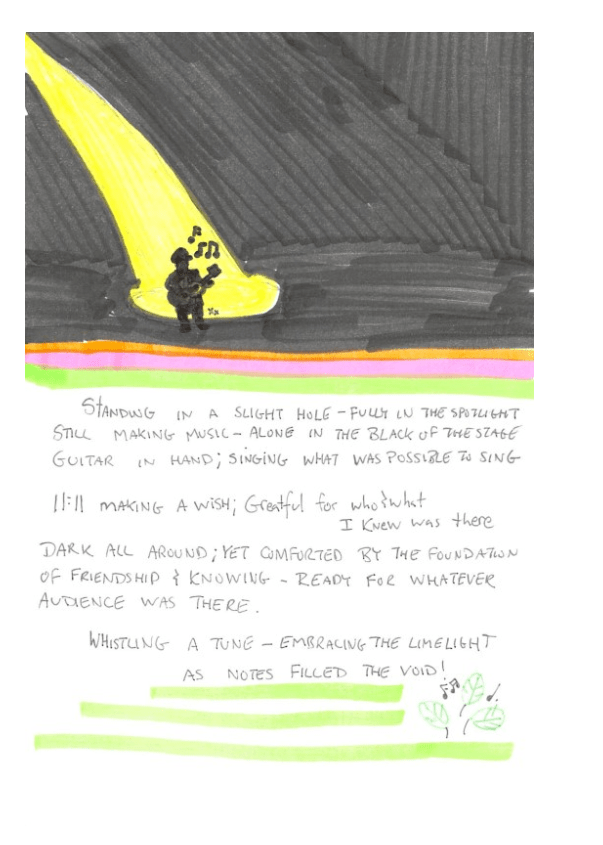 STANDING IN A SLIGHT HOLE - FULLY IN THE SPOTLIGHT
STILL MAKING MUSIC - ALONE IN THE BLACK OF THE STAGE
GUITAR IN HAND; SINGING WHAT WAS POSSIBLE TO SING
11:11 MAKING A WISH; Greatful for who & what
I Knew was there
DARK ALL AROUND; YET COMFORTED BY THE FOUNDATION
OF FRIENDSHIP & KNOWING - READY FOR WHATEVER
AUDIENCE WAS THERE.
WHISTLING A TUNE - EMBRACING THE LIMELIGHT
AS NOTES FILLED THE VOID!